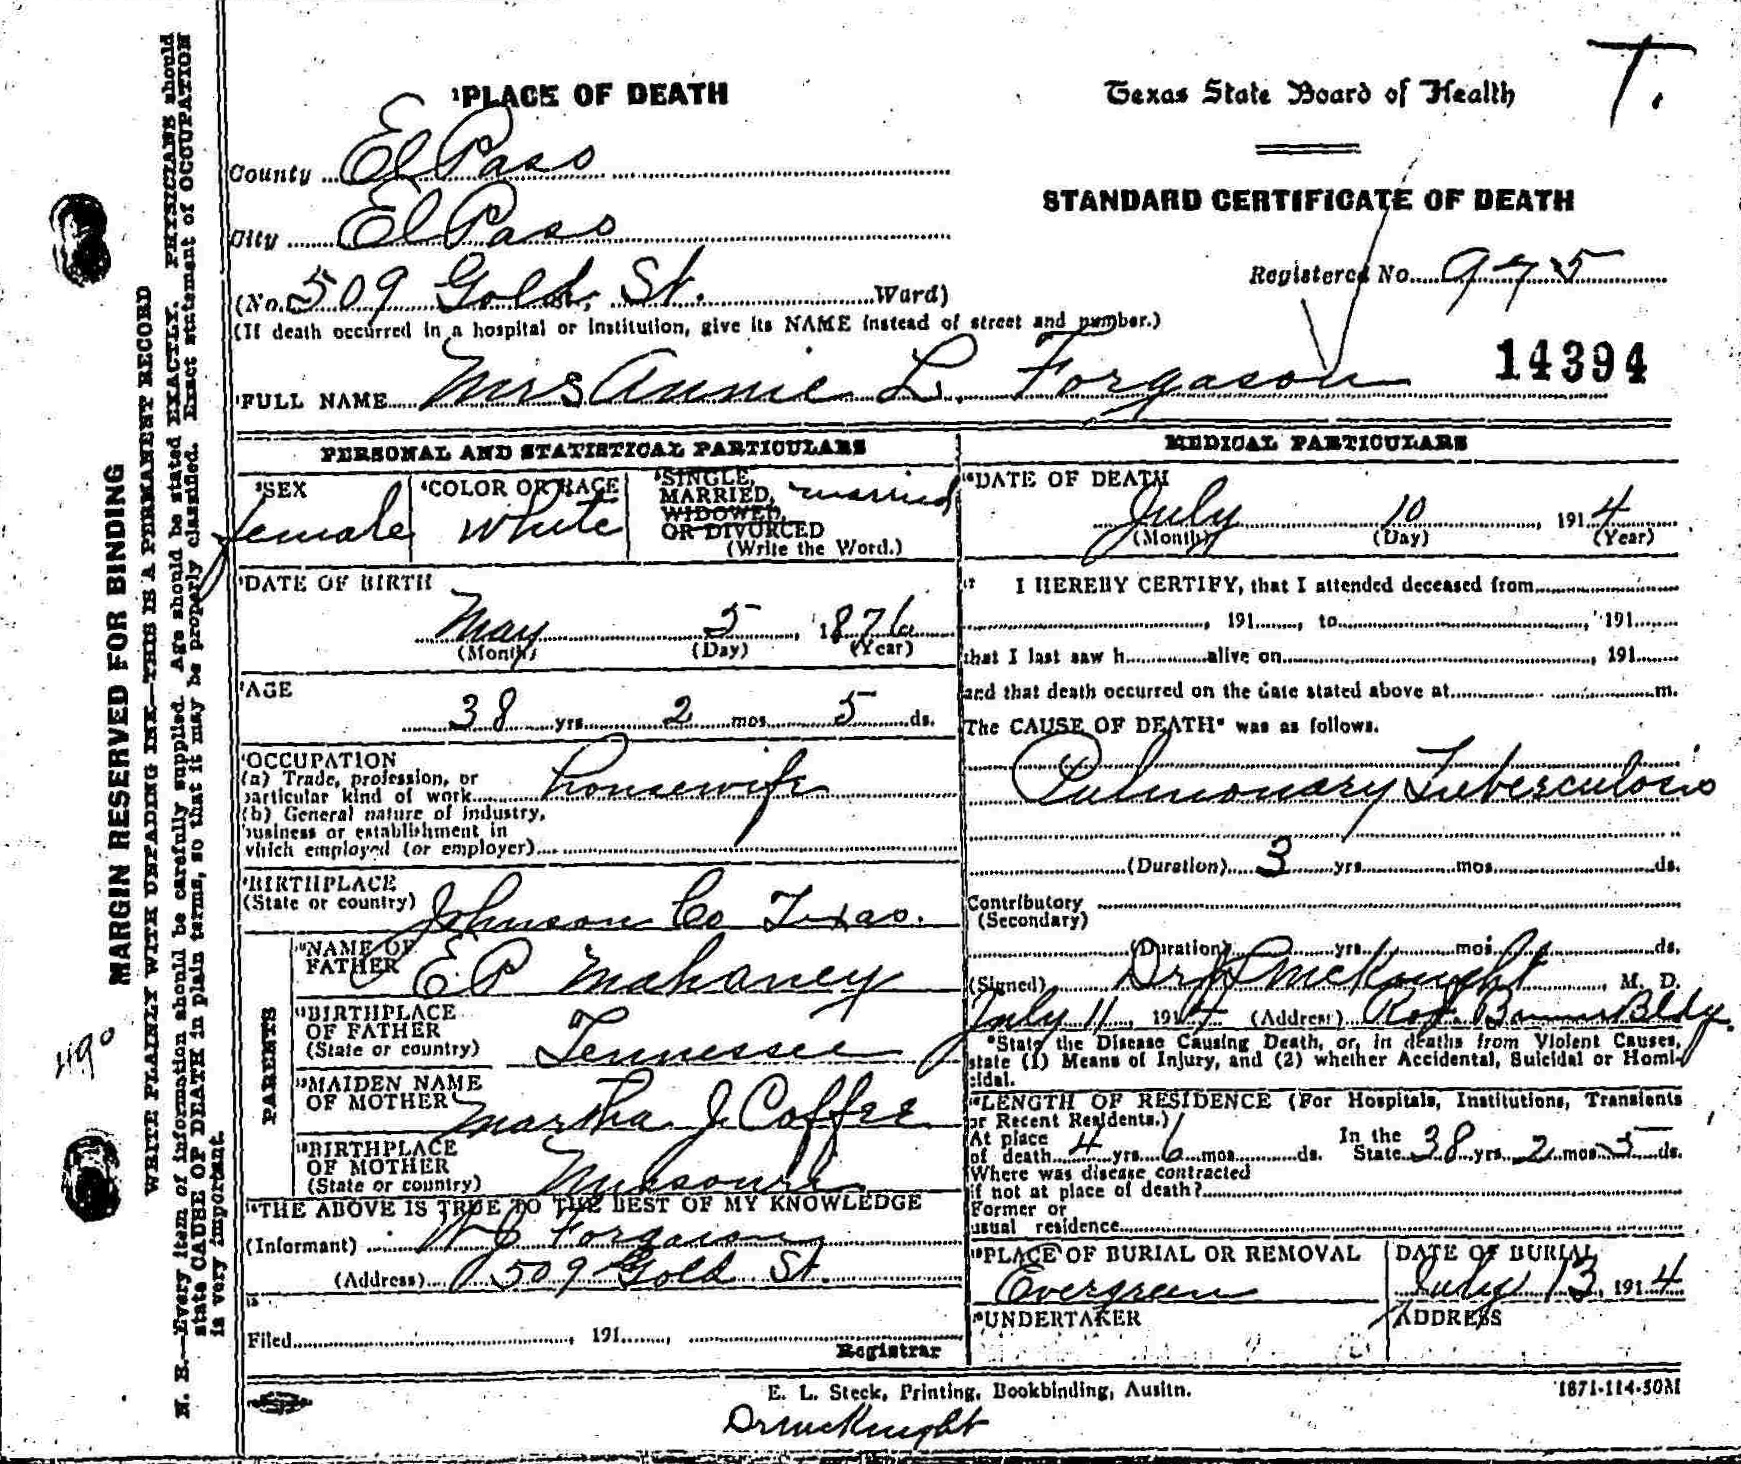 T.
PLACE OF DEATH
Texas State Board of Health
County El Paso
STANDARD CERTIFICATE OF DEATH
City El Paso
Registered No. 975
(No. 509 Gold St. Ward)
(If death occurred in a hospital or institution, give its NAME instead of street and number.)
14394
FULL NAME Mrs Annie L. Forgason
PERSONAL AND STATISTICAL PARTICULARS
SEX
female
COLOR OR RACE
White
SINGLE,
MARRIED, married
WIDOWED,
OR DIVORCED
(Write the Word.)
DATE OF BIRTH
May 5, 1876
(Month) (Day) (Year)
AGE
38 yrs 2 mos 5 ds.
OCCUPATION
(a) Trade, profession, or
particular kind of work housewife
(b) General nature of industry,
business or establishment in
which employed (or employer)
BIRTHPLACE
(State or country) Johnson Co Texas.
PARENTS
NAME OF
FATHER E P Mahaney
BIRTHPLACE
OF FATHER
(State or country) Tennessee
MAIDEN NAME
OF MOTHER Martha J. Coffee
BIRTHPLACE
OF MOTHER
(State or country) Missouri
THE ABOVE IS TRUE TO THE BEST OF MY KNOWLEDGE
(Informant) Forgason
(Address) 509 Gold St.
Filed , 191 ,
Registrar
MEDICAL PARTICULARS
DATE OF DEATH
July 10, 1914
(Month) (Day) (Year)
17 I HEREBY CERTIFY, that I attended deceased from
, 191 , to , 191
that I last saw h alive on , 191
and that death occurred on the date stated above at m.
The CAUSE OF DEATH* was as follows.
Pulmonary Tuberculosis
(Duration) 3 yrs mos ds.
Contributory
(Secondary)
(Duration) yrs mos ds.
(Signed) Dr McKnight, M. D.
July 11, 1914 (Address) Bldg.
*State the Disease Causing Death, or, in deaths from Violent Causes,
state (1) Means of Injury, and (2) whether Accidental, Suicidal or Homi-
cidal.
LENGTH OF RESIDENCE (For Hospitals, Institutions, Transients
or Recent Residents.)
At place
of death 4 yrs 6 mos ds. In the
State 38 yrs 2 mos 5 ds.
Where was disease contracted
if not at place of death?
Former or
usual residence
PLACE OF BURIAL OR REMOVAL
Evergreen
DATE OF BURIAL
July 13, 1914
UNDERTAKER
ADDRESS
E. L. Steck, Printing, Bookbinding, Ausitn.
1871-114-50M
Dr McKnight
MARGIN RESERVED FOR BINDING
WRITE PLAINLY WITH UNFADING INK—THIS IS A PERMANENT RECORD
N. B.—Every item of information should be carefully supplied. Age should be stated EXACTLY. PHYSICIANS should
state CAUSE OF DEATH in plain terms, so that it may be properly classified. Exact statement of OCCUPATION
is very important.
490